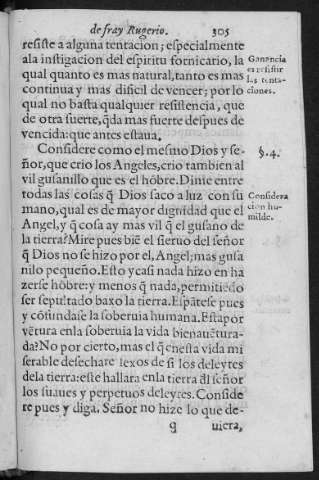 de fray Rugerio. 305
resiste a alguna tentacion; especialmente
ala instigacion del espiritu fornicario, la
qual quanto es mas natural, tanto es mas
continua y mas dificil de vencer; por lo
qual no basta qualquier resistencia, que
de otra suerte, q̃da mas fuerte despues de
vencida: que antes estaua.
Ganancia
es resistir
las tenta-
ciones.
Considere como el mesmo Dios y se-
ñor, que crio los Angeles, crio tambien al
vil gusanillo que es el hõbre. Dime entre
todas las cosas q̃ Dios saco a luz con su
mano, qual es de mayor dignidad que el
Angel, y q̃ cosa ay mas vil q̃ el gusano de
la tierra? Mire pues biẽ el sieruo del señor
q̃ Dios no se hizo por el, Angel; mas gusa
nilo pequeño. Esto y casi nada hizo en ha
zerse hõbre: y menos q̃ nada, permitiẽdo
ser sepultado baxo la tierra. Espãtese pues
y cõfundase la soberuia humana. Esta por
vẽtura enla soberuia la vida bienauẽtura-
da? No por cierto, mas el q̃ enesta vida mi
serable desechare lexos de si los deleytes
dela tierra: este hallara enla tierra dl señor
los suaues y perpetuos deleytes. Conside
re pues y diga. Señor no hize lo que de-
§. 4.
Considera
cion hu-
milde.
q uiera,